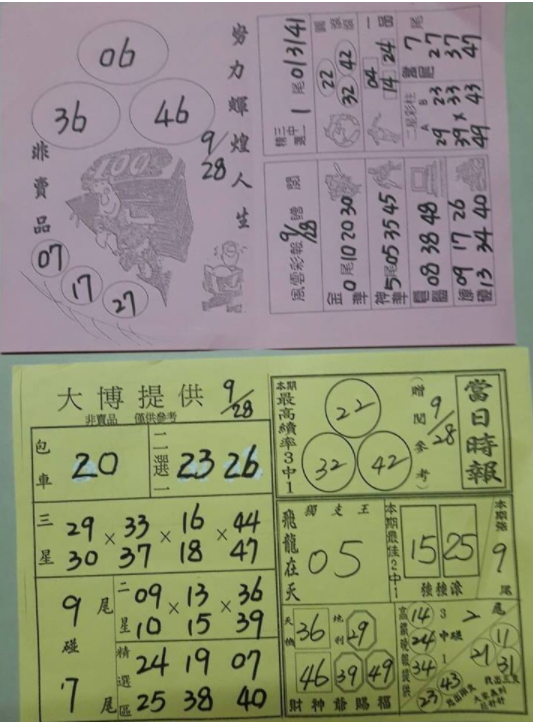 努力輝煌人生
9/28
06
36 46
非賣品
100
07
17
27
精三中選
1尾 01 31 41
22 42
32
一品
04 24
14
尾
7 27 37 47
二星彩柱
A B
29 23
39 × 33
49 43
風雲彩報 贈閱
9/28
金準
0尾 10 20 30
神準
5尾 05 35 45
電腦
08 38 48
09 17 26
13 34 40
大博提供 9/28
非賣品 僅供參考
包車
20
二選一
23 26
三星
29 × 33 × 16 × 44
30 37 18 47
9尾
碰
7尾
二星
09 × 13 × 36
10 15 39
精選區
24 19 07
25 38 40
當日時報
9/28
(贈閱參考)
本期最高續率3中1
22
32 42
飛龍在天
獨支王
05
本期最佳2中1
15 25
強強滾
本期強
9
尾
天機
36
地利
29
46 39 49
財神爺賜福
14
24
34
3中1
2尾
11
21 31
23 43